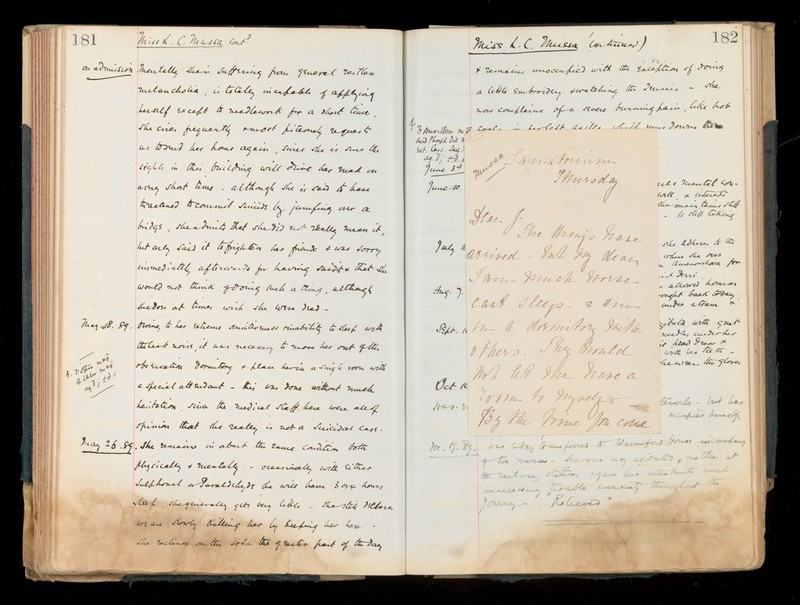 181
Miss L. C. Mussa Cont^d
on admission Mentally she is suffering from general restless
melancholia, is totally incapable of applying
herself except to needlework for a short time.
She cries frequently & most piteously requests
us to send her home again, since she is sure the
sights in this building will drive her mad in
a very short time - although she is said to have
threatened to commit suicide by jumping over a
bridge, she admits that she did not really mean it,
but only said it to frighten her friends & was sorry
immediately afterwards for having said it & that she
would not think of doing such a thing, although
she does at times wish she were dead -
May 18. 89. Owing to her extreme sensitiveness & inability to sleep with
the least noise, it was necessary to move her out of the
observation Dormitory & place her in a single room with
a special attendant - this was done without much
hesitation, since the medical staff here were all of
opinion that she really is not a suicidal case.
May 26. 89. She remains in about the same condition both
physically & mentally - occasionally with either
Sulphonal or Paraldehyde she will have 3 or 4 hours
sleep, she generally gets very little - She still declares
we are slowly killing her by keeping her here -
She reclines on the sofa the greater part of the day
182
Miss L. C. Mussa (continued)
& remains unoccupied with the exception of doing
a little embroidery & watching the Tennis - she
now complains of a severe burning pain, like hot
June 3rd
June 10.
July
Aug. 7.
Sept.
Oct
Nov.
Mussa
Sanatorium
Thursday.
Dear J-
The things have
arrived - but my dear
I am much worse -
can't sleep - & am
in a dormitory with
others. They would
not let me have a
room to myself -
By the time you come
she adheres to the
Amenorrhoea for
- allowed home on
brought back today,
with great
needles under her
with her teeth -
the gloves
- but has
occupies herself
Dec. 17. 89. was today transferred to Warneford House in company
of two nurses. She was very agitated & restless at
the railway station & gave her attendants much
unnecessary trouble & anxiety throughout the
journey - "Relieved"